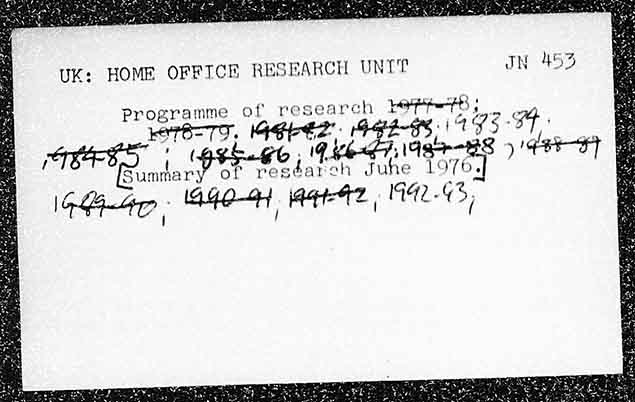 UK: HOME OFFICE RESEARCH UNIT JN 453
Programme of research 1977-78;
1978-79. 1981-82. 1982-83, 1983-84.
1984-85; 1985-86; 1986-87; 1987-88, 1988-89
[Summary of research June 1976.]
1989-90; 1990-91; 1991-92, 1992-93,